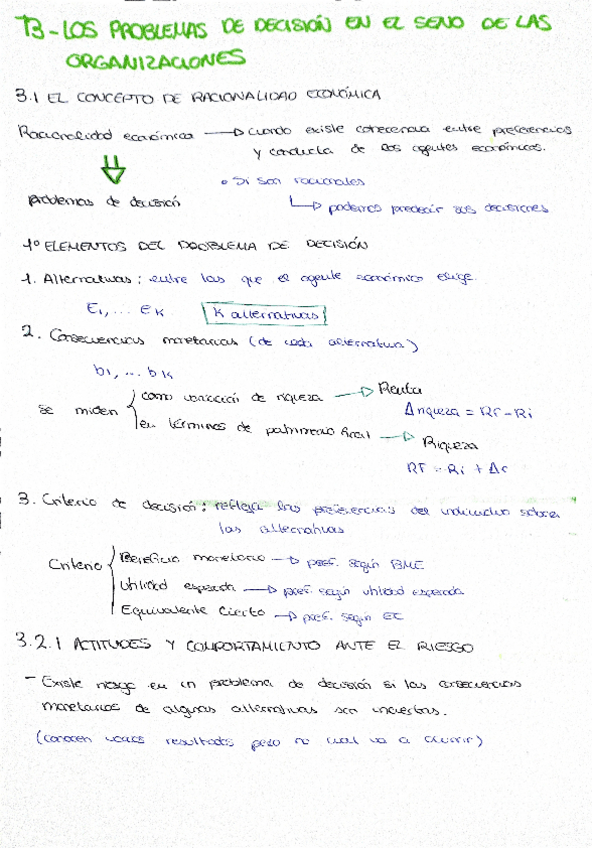 T3 - LOS PROBLEMAS DE DECISIÓN EN EL SENO DE LAS
ORGANIZACIONES
3.1 EL CONCEPTO DE RACIONALIDAD ECONÓMICA
Racionalidad económica → cuando existe coherencia entre preferencias
y conducta de los agentes económicos.
• Si son racionales
problemas de decisión
→ podemos predecir sus decisiones
1º ELEMENTOS DEL PROBLEMA DE DECISIÓN
1. Alternativas: entre las que el agente económico elige.
E1, ... EK K alternativas
2. Consecuencias monetarias (de cada alternativa)
b1, ... bK
como variación de riqueza → Renta
se miden Δriqueza = RF - Ri
en términos de patrimonio final → Riqueza
RF = Ri + Δr
3. Criterio de decisión: refleja las preferencias del individuo sobre
las alternativas
Beneficio monetario → pref. según BME
Criterio
Utilidad esperada → pref. según utilidad esperada
Equivalente Cierto → pref. según EC
3.2.1 ACTITUDES Y COMPORTAMIENTO ANTE EL RIESGO
- Existe riesgo en un problema de decisión si las consecuencias
monetarias de algunas alternativas son inciertas.
(conocen varios resultados pero no cual va a ocurrir)